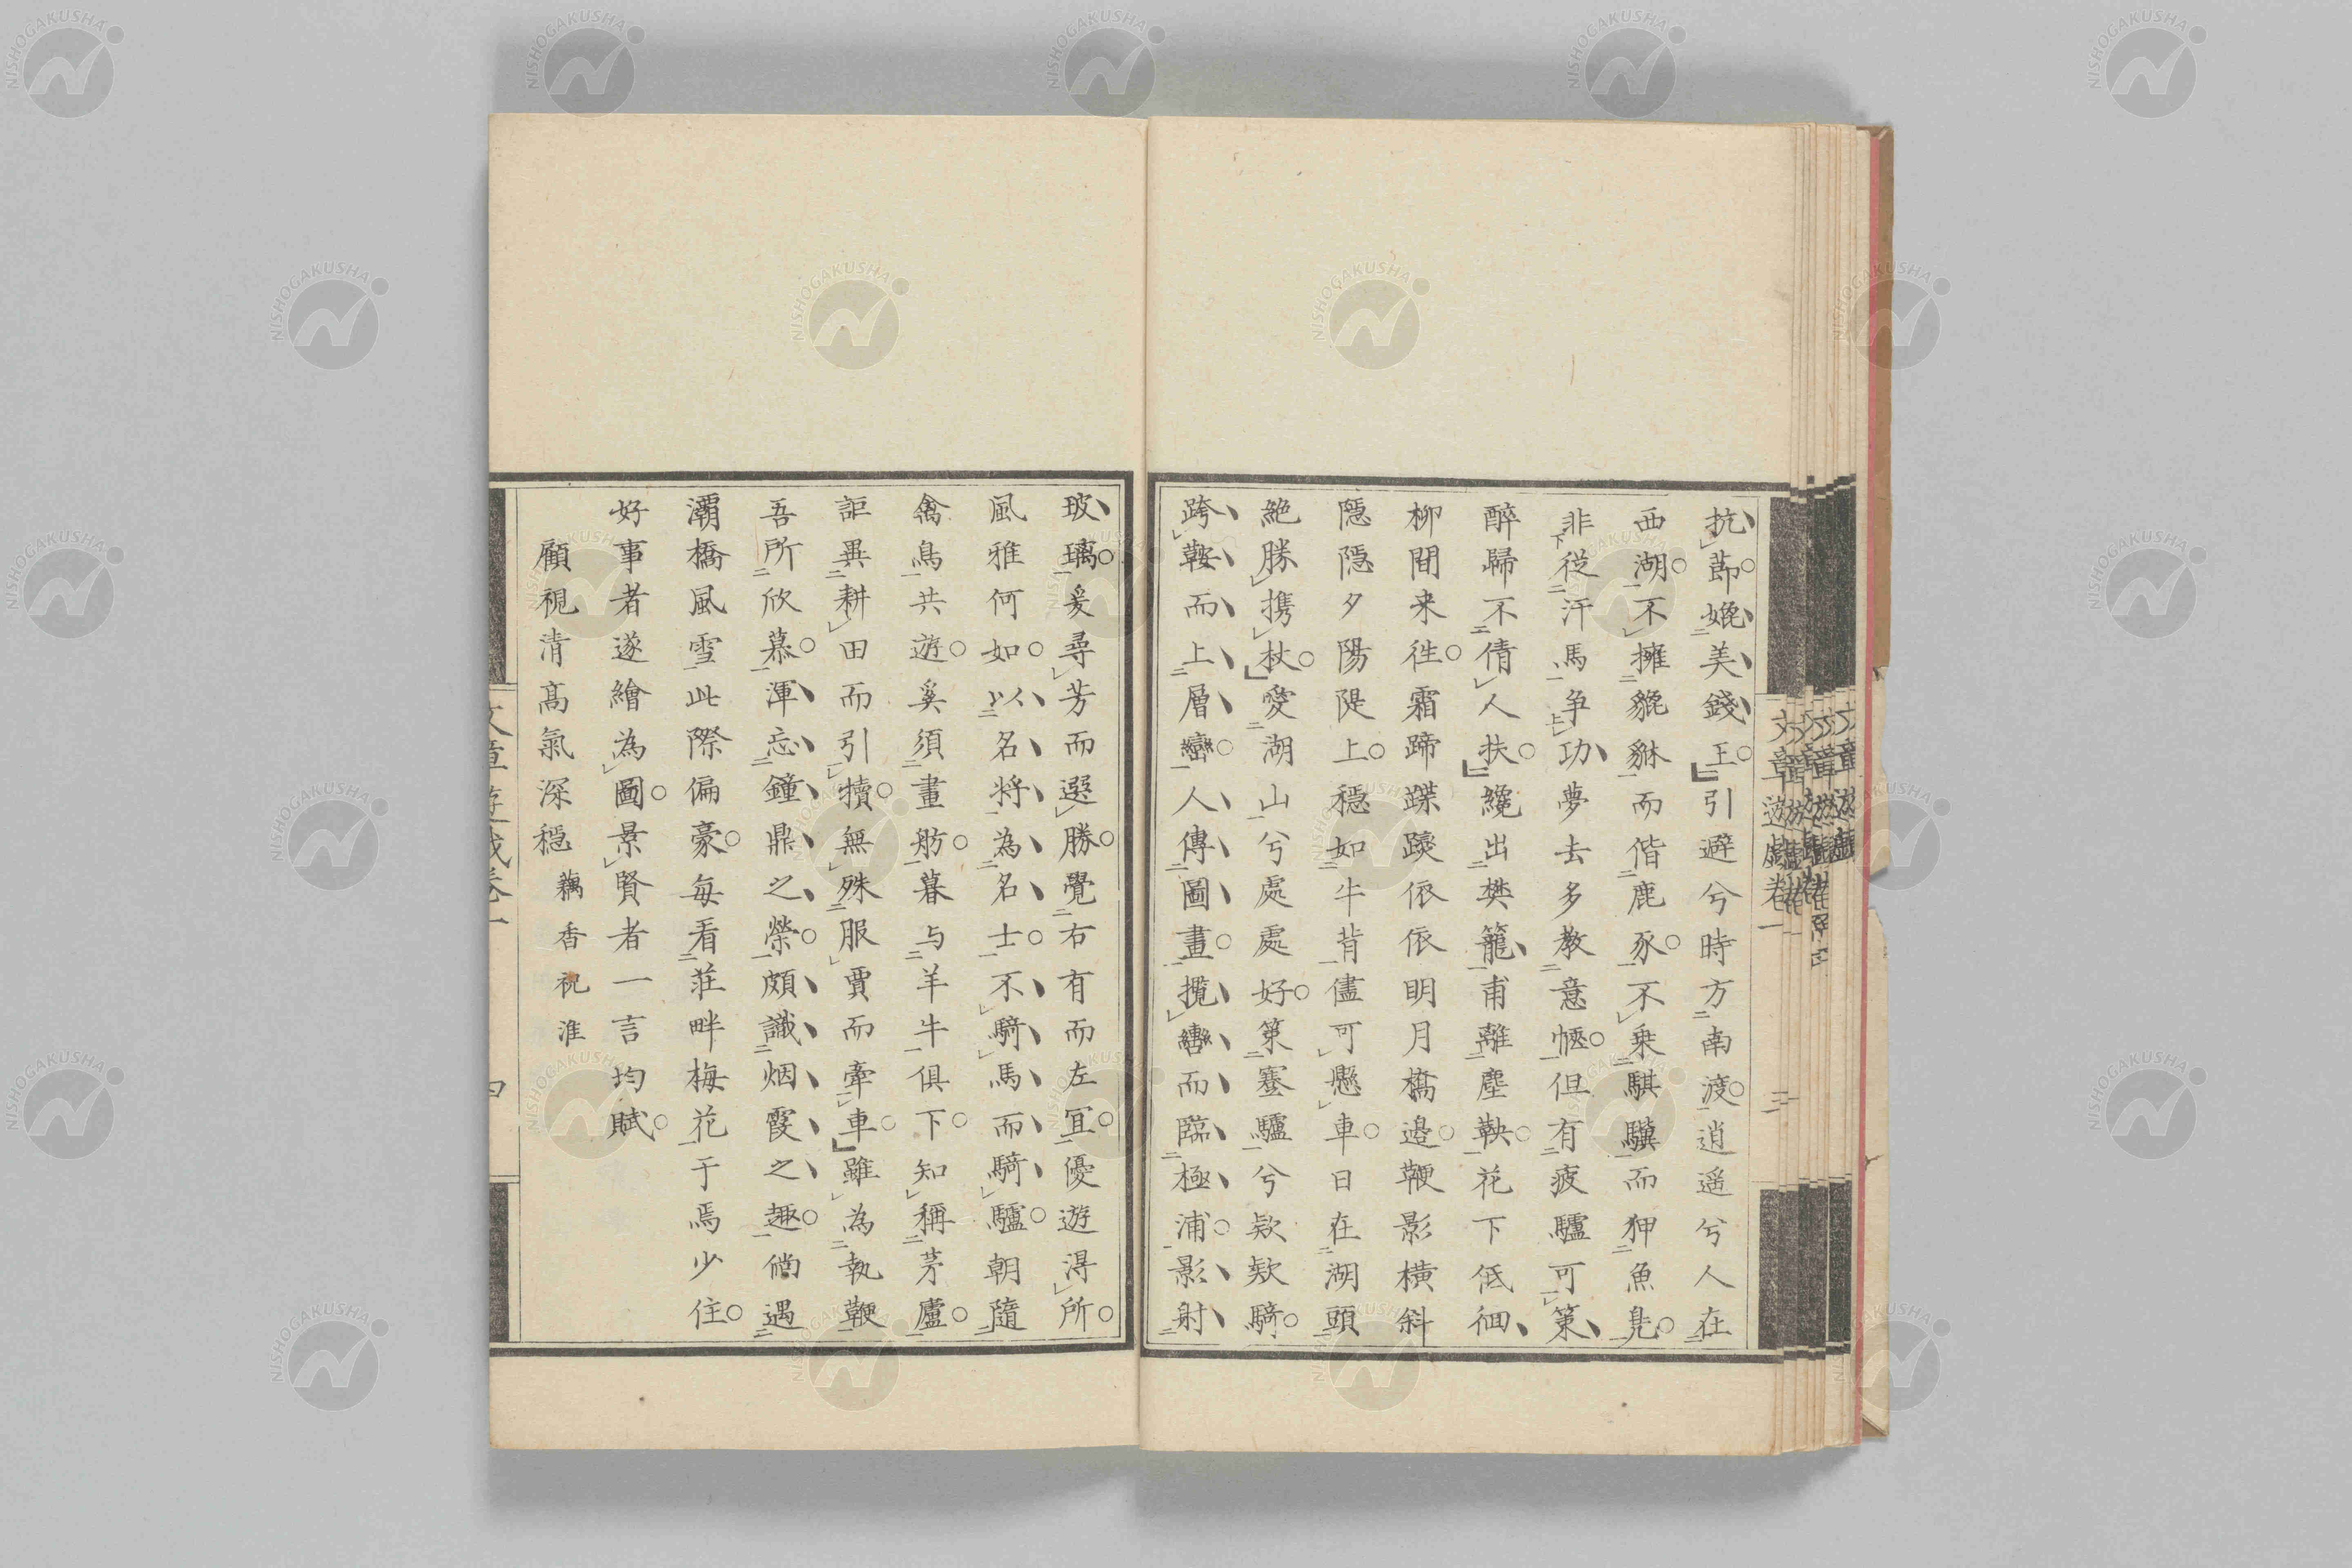 抗節娩美錢王引避兮時方南渡逍遥兮人在
西湖不擁貔貅而偕鹿豕不乗騏驥而狎魚鳧
非從汗馬争功夢去多教意愜但有疲驢可策
醉歸不倩人扶纔出樊籠甫離塵鞅花下低徊
柳間来往霜蹄蹀躞依依明月橋邉鞭影横斜
隱隱夕陽隄上穏如牛背儘可懸車日在湖頭
絶勝携杖愛湖山兮處處好策蹇驢兮欵欵騎
跨鞍而上層巒人傳圖畫攬轡而臨極浦影射
玻璃爰尋芳而選勝覺右有而左宜優遊得所
風雅何如以名將為名士不騎馬而騎驢朝隨
禽鳥共遊奚須畫舫暮与羊牛俱下知稱茅廬
詎異耕田而引犢無殊服賈而牽車雖為執鞭
吾所欣慕渾忘鐘鼎之榮頗識烟霞之趣倘遇
灞橋風雪此際偏豪毎看荘畔梅花于焉少住
好事者遂繪為圖景賢者一言均賦
顧視清髙氣深穏 藕香祝淮
文章遊戯卷一
四
文章遊戯卷一
三
NISHOGAKUSHA